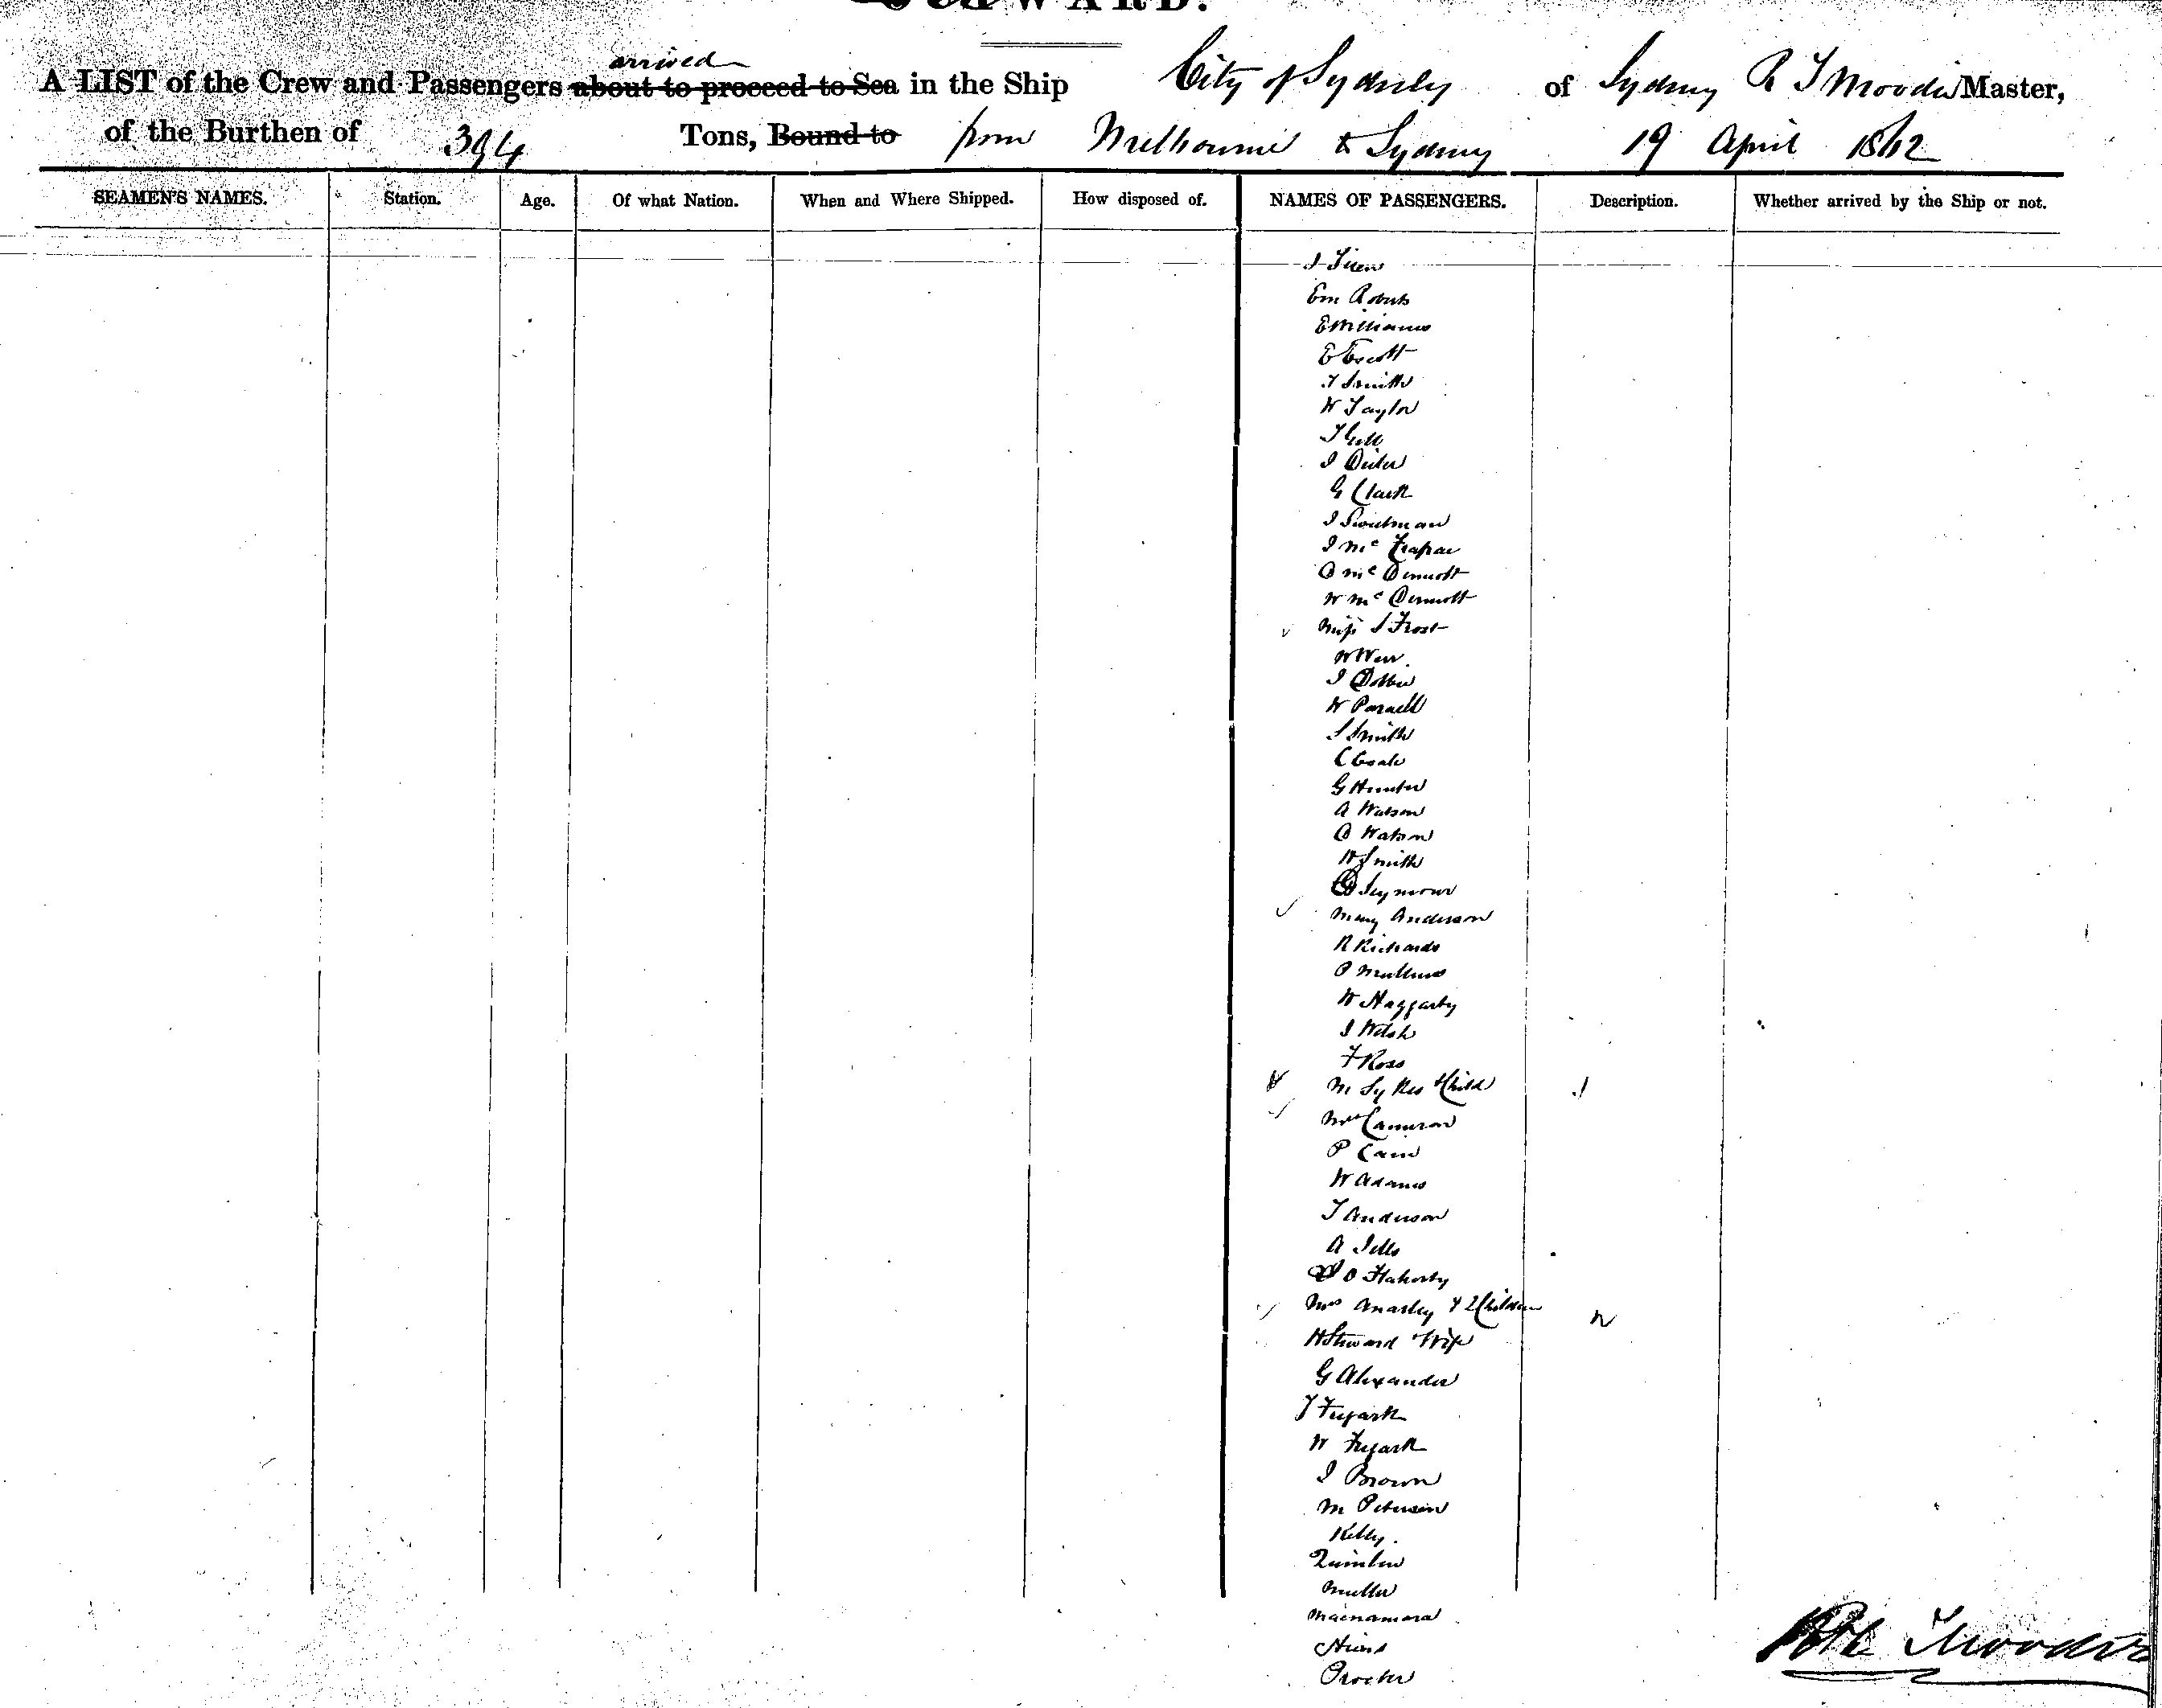 A LIST of the Crew and Passengers about to proceed to Sea arrived in the Ship City of Sydney of Sydney R T Moodie Master,
of the Burthen of 394 Tons, Bound to from Melbourne to Sydney 19 April 1862
SEAMEN'S NAMES. Station. Age. Of what Nation. When and Where Shipped. How disposed of. NAMES OF PASSENGERS. Description. Whether arrived by the Ship or not.
Em Roberts
E Williams
E Escott
T Smith
W Taylor
T Gill
G Clark
D McDermott
W McDermott
Miss S Frost
W Weir
W Parnell
S Smith
G Hunter
A Watson
D Watson
W Smith
Seymour
Mary Anderson
R Richards
P Mullins
W Haggarty
J Welsh
F Ross
M Sykes & Child 1
Cameron
P Cain
W Adams
T Anderson
O Flaherty
Mrs Anasley & 2 Children
H Steward Wife
G Alexander
T
W
J Brown
M Peterson
Kelly.
Quinlan
Muller
Macnamara
Hind
Procter